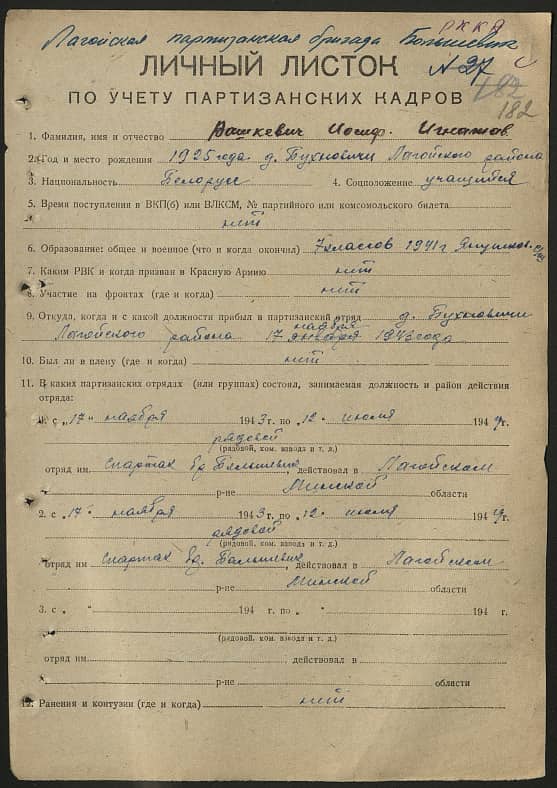 РККА
Лагойская партизанская бригада Большевик
ЛИЧНЫЙ ЛИСТОК
N 27
ПО УЧЕТУ ПАРТИЗАНСКИХ КАДРОВ
182
1. Фамилия, имя и отчество Вашкевич Иосиф. Игнатов
2. Год и место рождения 1925 года д. Пухновичи Лагойского района
3. Национальность Белорусс 4. Соцположение учащийся
5. Время поступления в ВКП(б) или ВЛКСМ, № партийного или комсомольского билета
нит
6. Образование: общее и военное (что и когда окончил) 7 класов 1941 г
7. Каким РВК и когда призван в Красную Армию нит
8. Участие на фронтах (где и когда) нит
9. Откуда, когда и с какой должности прибыл в партизанский отряд д. Пухновичи
ноября
Лагойского района 17 января 1943 года
10. Был ли в плену (где и когда) нит
11. В каких партизанских отрядах (или группах) состоял, занимаемая должность и район действия
отряда:
1. с „17“ ноября 1943 г. по „12“ июля 1944 г.
рядовой
(рядовой, ком. взвода и т. д.)
отряд им Спартак бр. Большевик, действовал в Лагойском
р-не Минской области
2. с „17“ ноября 1943 г. по „12“ июля 1944 г.
рядовой
(рядовой, ком. взвода и т. д.)
отряд им Спартак бр. Большевик, действовал в Лагойском
р-не Минской области
3. с „ “ 194 г. по „ “ 194 г.
(рядовой, ком. взвода и т. д.)
отряд им. действовал в
р-не области
12. Ранения и контузии (где и когда) нит